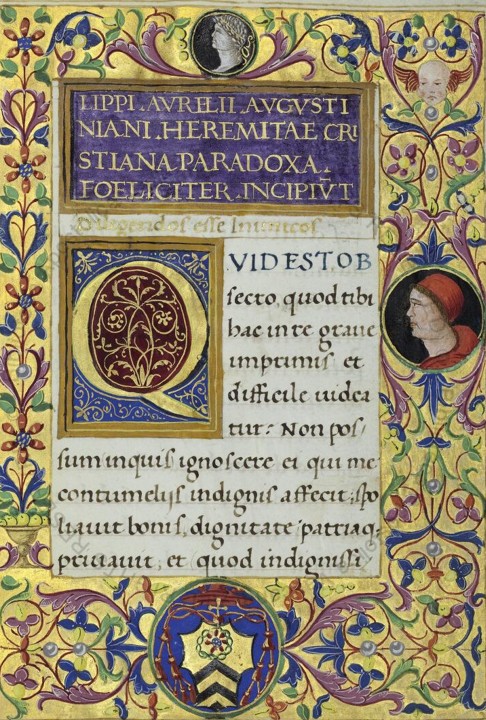 LIPPI. AVRELII. AVGVSTI
NIANI. HEREMITAE CRI
STIANA PARADOXA.
FOELICITER. INCIPIV̄T
Diligendos esse Inimicos
QVID EST OB
secro, quod tibi
hac in re graue
imprimis et
difficile uidea
tur? Non pos
sum inquis ignoscere ei qui me
contumelijs indignis affecit; spo
liauit bonis, dignitate, patriaq,
priuauit, et quod indignissi